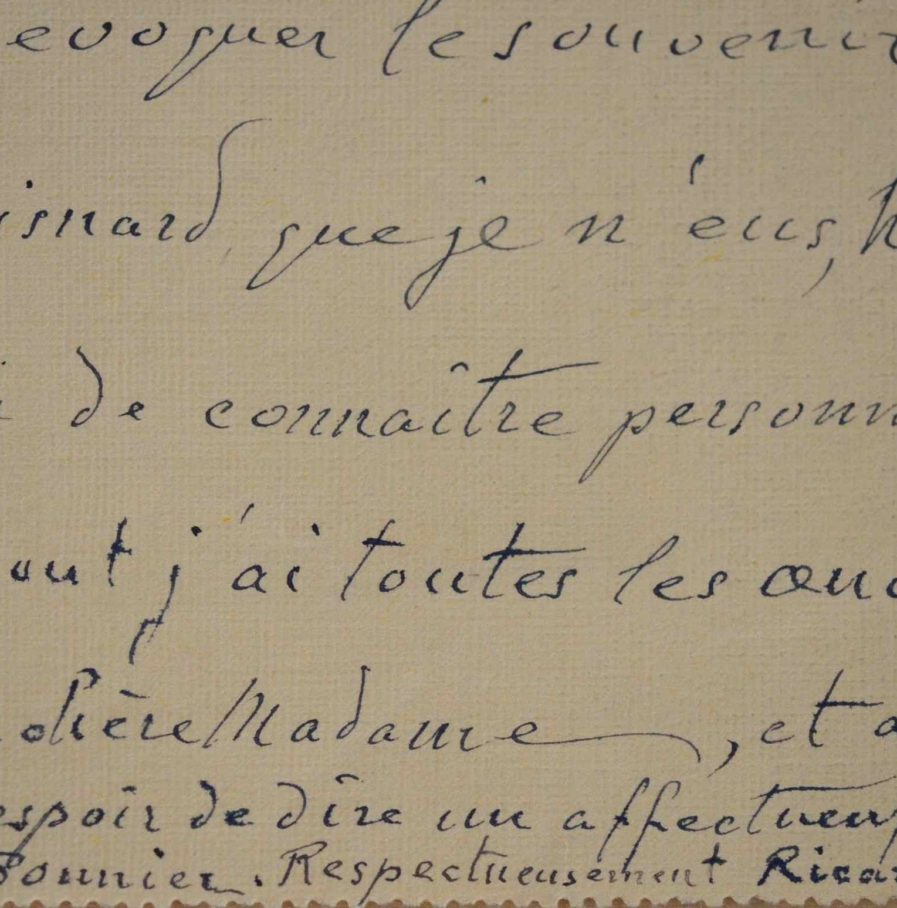 evoquer le souvenir
isnard, que je n'eus, h
i de connaître personn
ont j'ai toutes les œuv
chère Madame, et a
espoir de dire un affectueux
Bonnier. Respectueusement Ricar